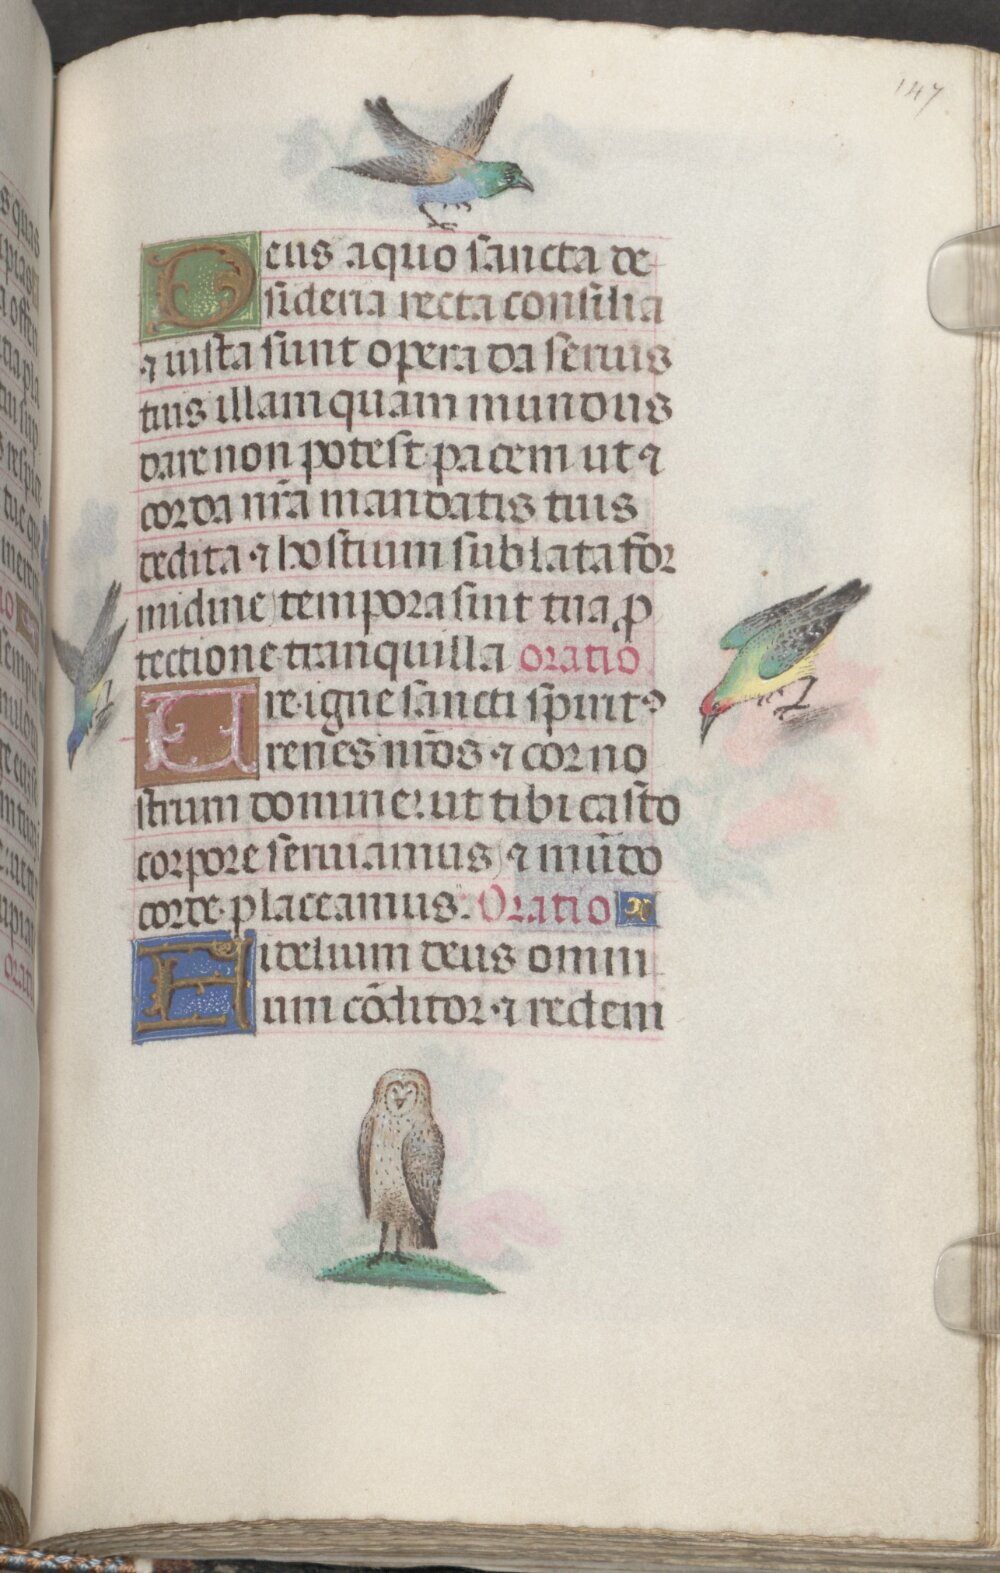 147
Deus a quo sancta de
sideria recta consilia
⁊ iusta sunt opera da seruis
tuis illam quam mundus
dare non potest pacem ut ⁊
corda nr̄a mandatis tuis
dedita ⁊ hostium sublata for
midine tempora sint tua ꝓ
tectione tranquilla oratio
Ure igne sancti sp̄iritꝰ
renes nr̄os ⁊ cor no
strum domine: ut tibi casto
corpore seruiamus ⁊ mūdo
corde placeamus. Oratio
Fidelium deus omni
um cōditor ⁊ redem